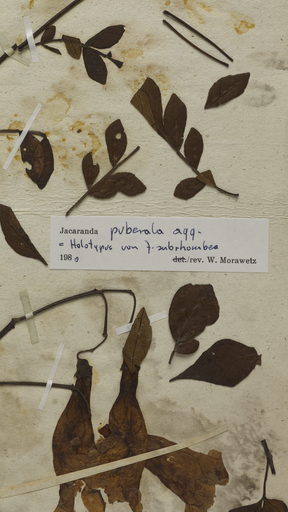 Jacaranda puberula agg.
= Holotypus von J. subrhombea
1989 det./rev. W. Morawetz